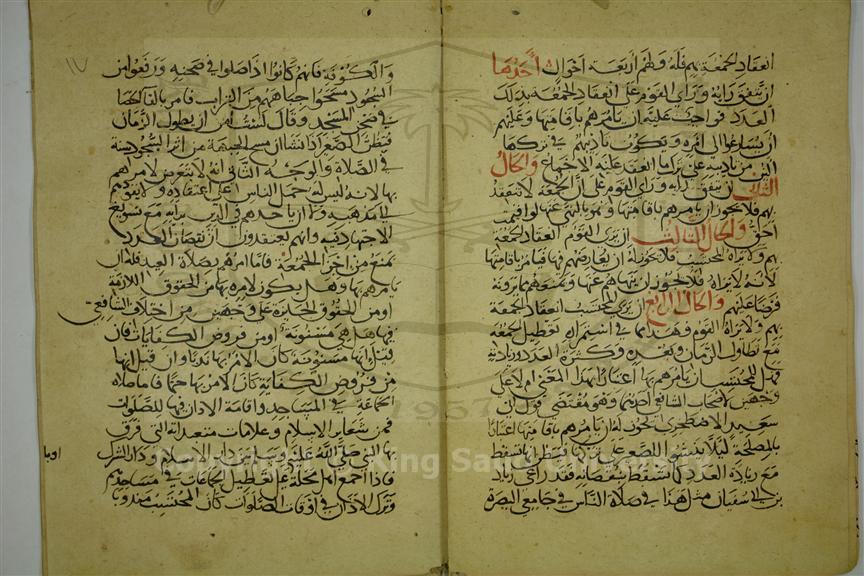 انعقاد الجمعة بهم فله ولهم أربعة أحوال أحدها
أن يتفق رأيه ورأي القوم على انعقاد الجمعة بذلك
العدد فواجب عليه أن يأمرهم بإقامتها وعليهم
أن يسارعوا إلى أمره ويكون تأديبهم في تركها
ألين من تأديبه على ترك ما انعقد عليه الإجماع والحال
الثاني أن يتفق رأيه ورأي القوم على أن الجمعة لا تنعقد
بهم فلا يجوز أن يأمرهم بإقامتها وهو بالنهي عنها لو أقيمت
أحق والحال الثالث أن يرى القوم انعقاد الجمعة
بهم ولا يراه المحتسب فلا يجوز له أن يعارضهم فيها فيأمر بإقامتها
لأنه لا يراه فلا يجوز أن ينهاهم عنها ويمنعهم مما يرونه
فرضا عليهم والحال الرابع أن يرى المحتسب انعقاد الجمعة
بهم ولا يراه القوم فهذا مما في استمراره تعطيل الجمعة
مع تطاول الزمان وبعده وكثرة العدد وزيادته
فهل للمحتسب أن يأمرهم بها اعتبارا بهذا المعنى أم لا على
وجهين لأصحاب الشافعي أحدهما وهو مقتضى قول أبي
سعيد الاصطخري أنه يجوز له أن يأمرهم بإقامتها اعتبارا
بالمصلحة ليلا ينشؤ الصغير على تركها فيظن أنها تسقط
مع زيادة العدد كما تسقط بنقصانه فقد راعى زياد
بن أبي سفيان مثل هذا في صلاة الناس في جامعي البصرة
١٧
والكوفة فإنهم كانوا إذا صلوا في صحنه ورفعوا من
السجود مسحوا جباههم من التراب فأمر بإلقاء الحصا
في صحن المسجد وقال لست آمن أن يطول الزمان
فيظن الصغير إذا نشأ أن مسح الجبهة من أثر السجود سنة
في الصلاة والوجه الثاني أنه لا يتعرض لأمرهم
بها لأنه ليس له حمل الناس على اعتقاده ولا يقودهم
إلى مذهبه ولا أن يأخذهم في الدين برأيه مع تسويغ
الاجتهاد فيه وأنهم يعتقدون أن نقصان العدد
يمنع من إجزاء الجمعة فأما أمرهم بصلاة العيد فله أن
يأمرهم بها وهل يكون الأمر بها من الحقوق اللازمة
أو من الحقوق الجائزة على وجهين من اختلاف الشافعي
فيها هل هي مسنونة أو من فروض الكفايات فإن
قيل إنها مسنونة كان الأمر بها ندبا وإن قيل إنها
من فروض الكفاية كان الأمر بها حتما فأما صلاة
الجماعة في المساجد وإقامة الأذان فيها للصلوات
فمن شعائر الإسلام وعلامات متعبداته التي فرق
بها النبي صلى الله عليه وسلم بين دار الإسلام ودار الشرك
فإذا أجمع أهل محلة على تعطيل الجماعات في مساجدهم
وترك الأذان في أوقات الصلوات كان المحتسب مندوبا
King Saud University
1957